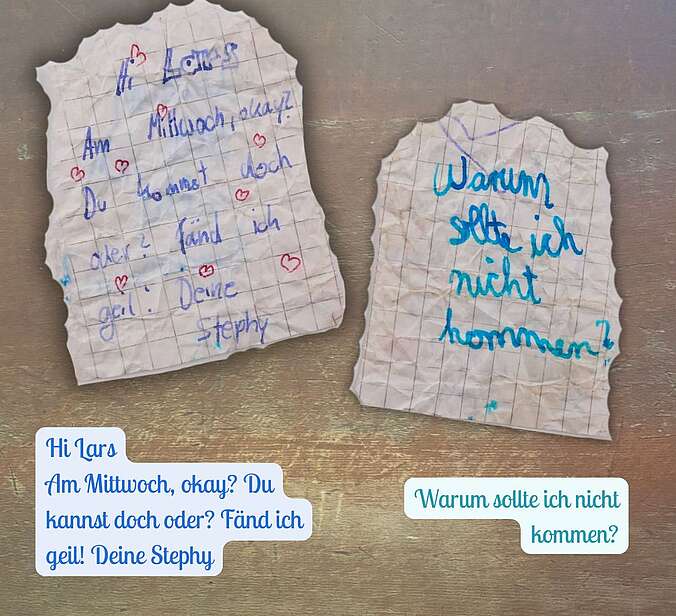 Hi Lars
Am Mittwoch, okay?
Du kommst doch
oder? Fänd ich
geil! Deine
Stephy
Warum
sollte ich
nicht
kommen?
Hi Lars
Am Mittwoch, okay? Du
kannst doch oder? Fänd ich
geil! Deine Stephy
Warum sollte ich nicht
kommen?